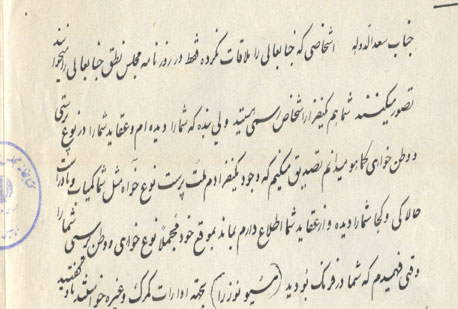 جناب سعدالدوله اشخاصی که جنابعالی را ملاقات نکرده فقط در روزنامه مجلس نطق جنابعالی را میخوانند
تصور میکنند شما هم یکنفر از اشخاص رسمی هستید ولی بنده که شما را دیده‌ام و عقاید شما را در نوع پرستی
و وطن خواهی کماهو میدانم تصدیق میکنم که وجود یکنفر آدم ملت پرست نوع خواه مثل شما کمیاب و نادر است
حالا کی و کجا شما را دیده و از عقاید شما اطلاع دارم بماند بموقع خود مجملاً نوع خواهی و وطن پرستی شما را
وقتی فهمیدم که شما در فرنگ بودید (مسیو نوز را) بجهته ادارات گمرک و غیره خواستند